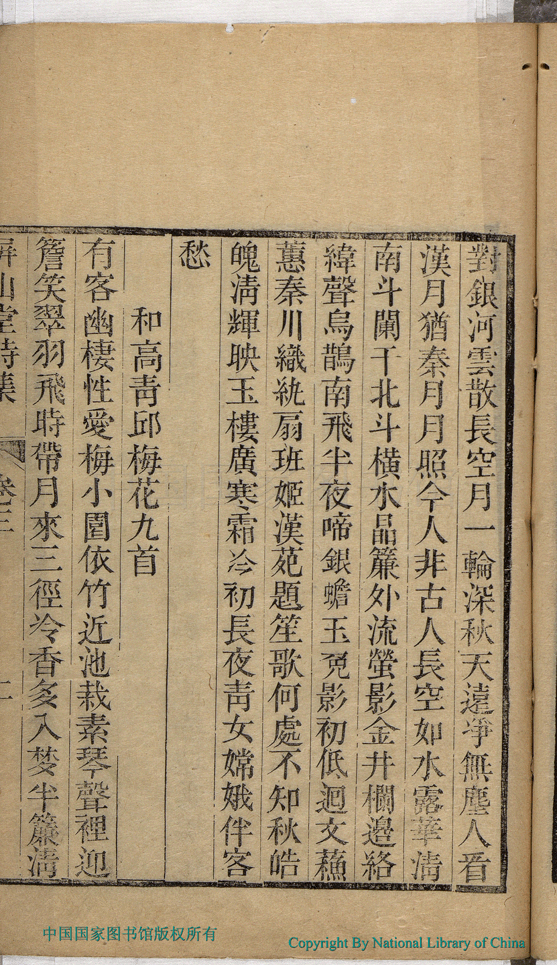 對銀河雲散長空月一輪深秋天遠淨無塵人看
漢月猶秦月月照今人非古人長空如水露華清
南斗闌干北斗橫水晶簾外流螢影金井欄邊絡
緯聲烏鵲南飛半夜啼銀蟾玉兔影初低迴文蘓
蕙秦川織紈扇班姬漢苑題笙歌何處不知秋皓
魄清輝映玉樓廣寒霜冷初長夜靑女嫦娥伴客
愁
和高靑邱梅花九首
有客幽棲性愛梅小園依竹近池栽素琴聲裡迎
簷笑翠羽飛時帶月來三徑冷香多入夢半簾淸
屏山堂詩集 卷三 二
中国国家图书馆版权所有
Copyright By National Library of China